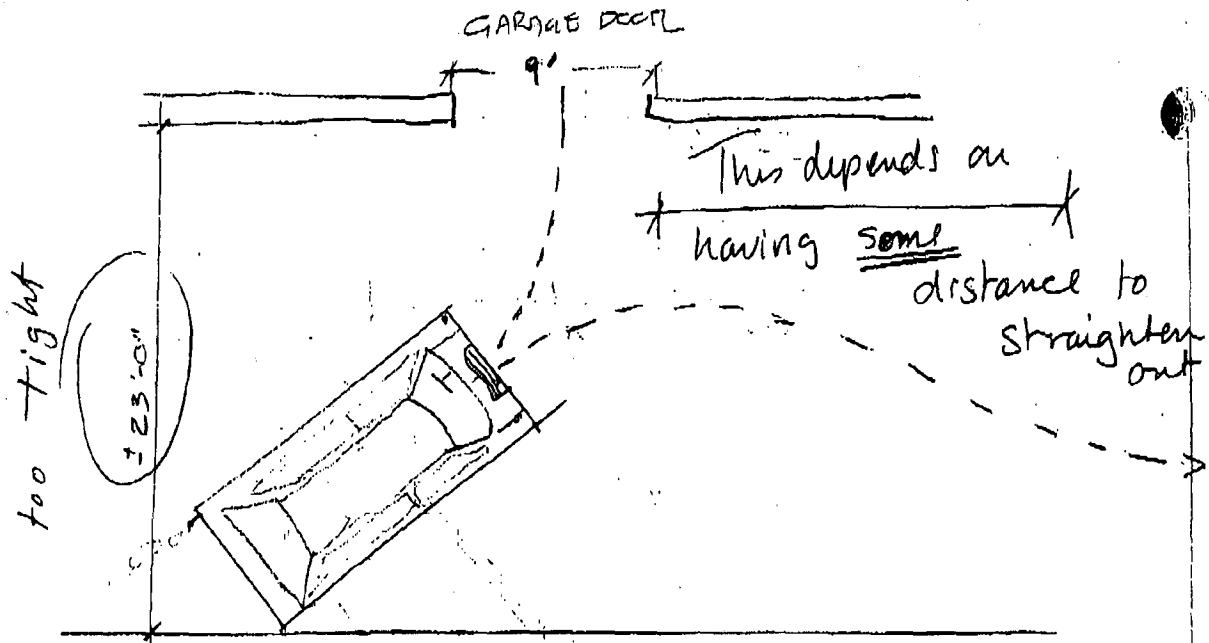 GARAGE DOOR
9'
This depends on
having some
distance to
straighten
out
too tight
± 23'-0"